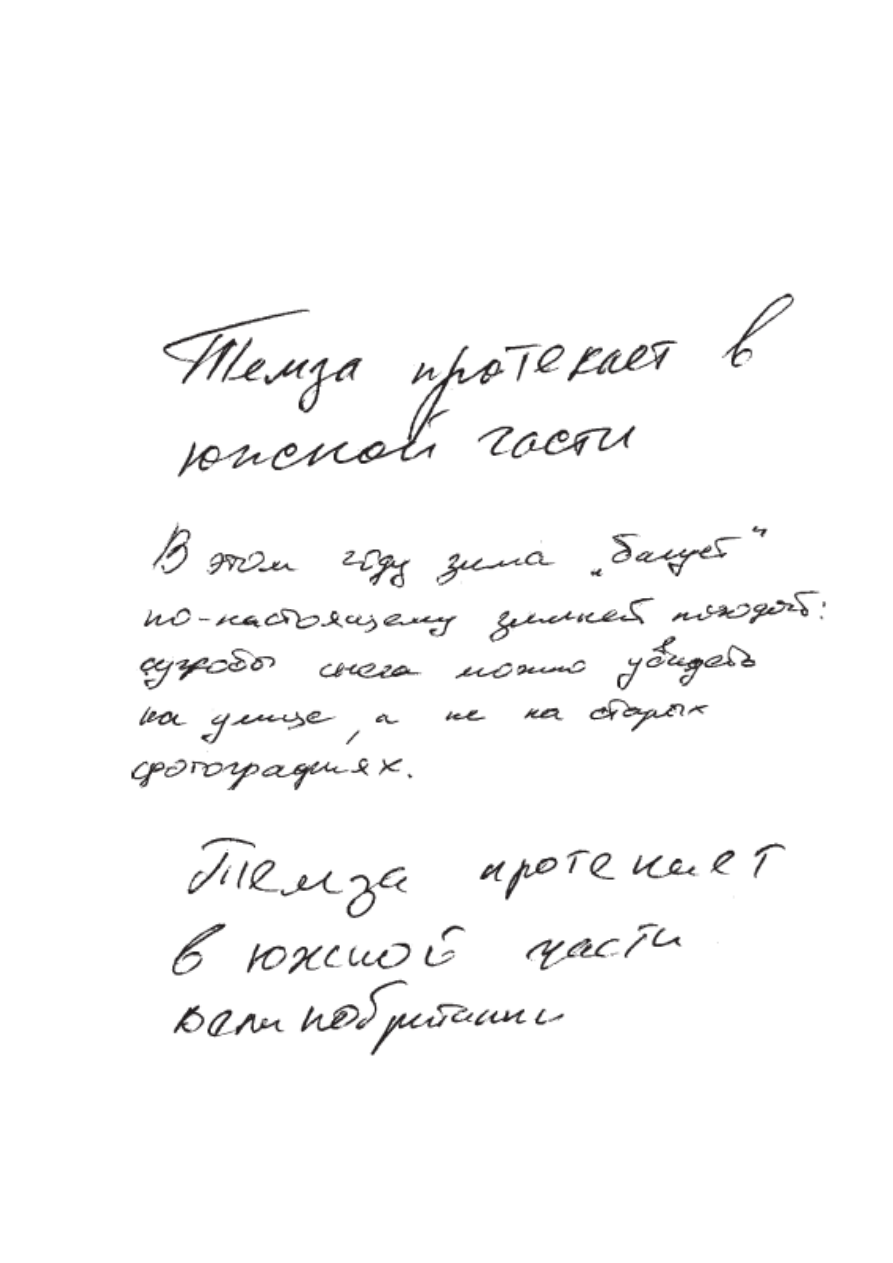 Темза протекает в
южной части
В этом году зима „балует“
по-настоящему зимней погодой:
сугробы снега можно увидеть
на улице, а не на старых
фотографиях.
Темза протекает
в южной части
великобритании